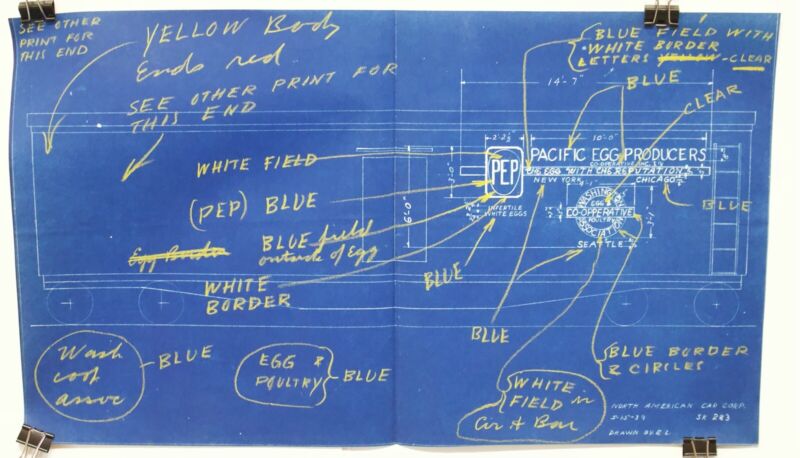 SEE OTHER
PRINT FOR
THIS END
YELLOW Body
Ends red
SEE OTHER PRINT FOR
THIS END
BLUE FIELD WITH
WHITE BORDER
LETTERS YELLOW - CLEAR
BLUE
CLEAR
14'-7"
2'-2½"
10'-0"
3'-0"
6'-0"
WHITE FIELD
(PEP) BLUE
Egg Border
BLUE field
outside of Egg
WHITE
BORDER
PEP
INFERTILE
WHITE EGGS
PACIFIC EGG PRODUCERS
CO-OPERATIVE, INC.
THE EGG WITH THE REPUTATION
NEW YORK
CHICAGO
WASHINGTON
EGG &
CO-OPERATIVE
POULTRY
ASSOCIATION
SEATTLE
BLUE
BLUE
BLUE
Wash
coop
assoc
BLUE
EGG &
POULTRY
BLUE
WHITE
FIELD in
Cir & Bar
BLUE BORDER
& CIRCLES
NORTH AMERICAN CAR CORP.
5-15-39
SK 283
DRAWN BY E.L.